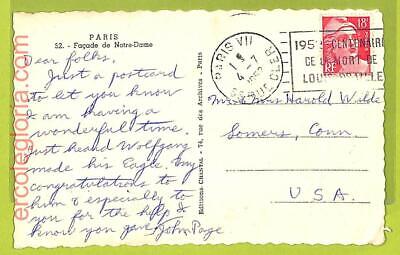 PARIS
52. - Façade de Notre-Dame
Dear folks,
Just a postcard
to let you know
I am having a
wonderful time.
Just heard Wolfgang
made his Eagle. My
congratulations to
him & especially to
you for the help I
know you gave John Page
Editions CHANTAL - 74, rue des Archives - Paris
PARIS VII
4-7
195 CENTENAIRE
DE LA MORT DE
LOUIS BRAILLE
18F
RF
Mr & Mrs Harold Wilde
Somers, Conn.
U.S.A.
ercolegloria.com